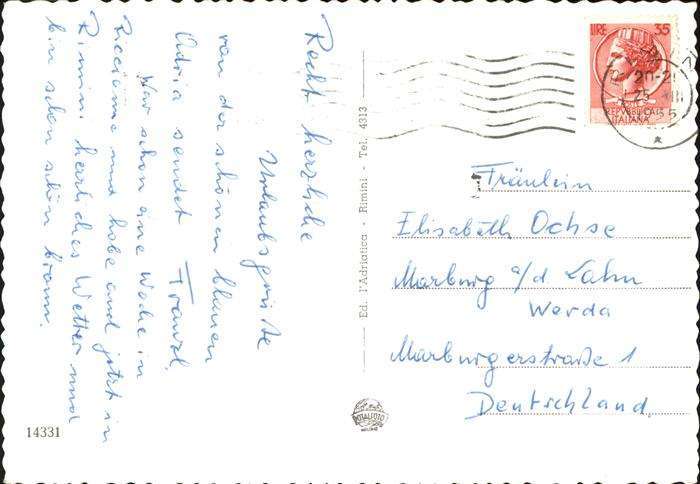 Recht herzliche
Urlaubsgrüße
von der schönen blauen
Adria sendet Franzl.
War schon eine Woche in
Riccione und habe auch jetzt in
Rimini herrliches Wetter und
bin schon schön braun.
14331
Ed. l'Adriatica - Rimini - Tel. 4313
LIRE 35
REPVBBLICA
ITALIANA
20-21
Fräulein
Elisabeth Ochse
Marburg a/d Lahn
Werda
Marburgerstraße 1
Deutschland.